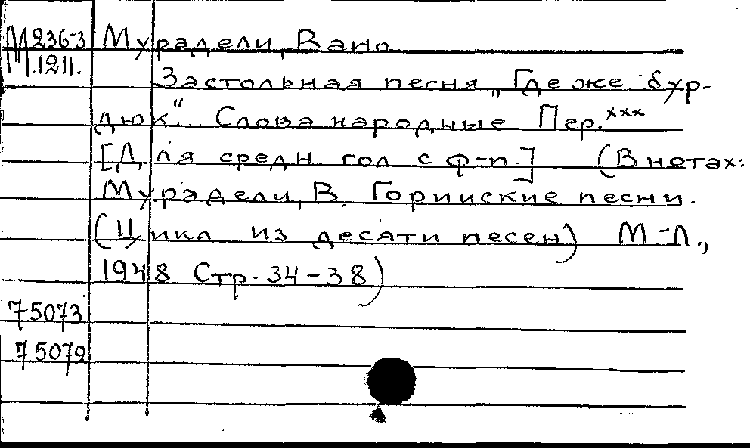 М 236-3 Мурадели, Вано
М.1211.
Застольная песня „Где же бур-
дюк“. Слова народные Пер.***
[Для средн. гол с ф-п.] (В нотах:
Мурадели, В. Горийские песни.
(Цикл из десяти песен) М-Л.,
1948 Стр. 34-38)
75073
75072